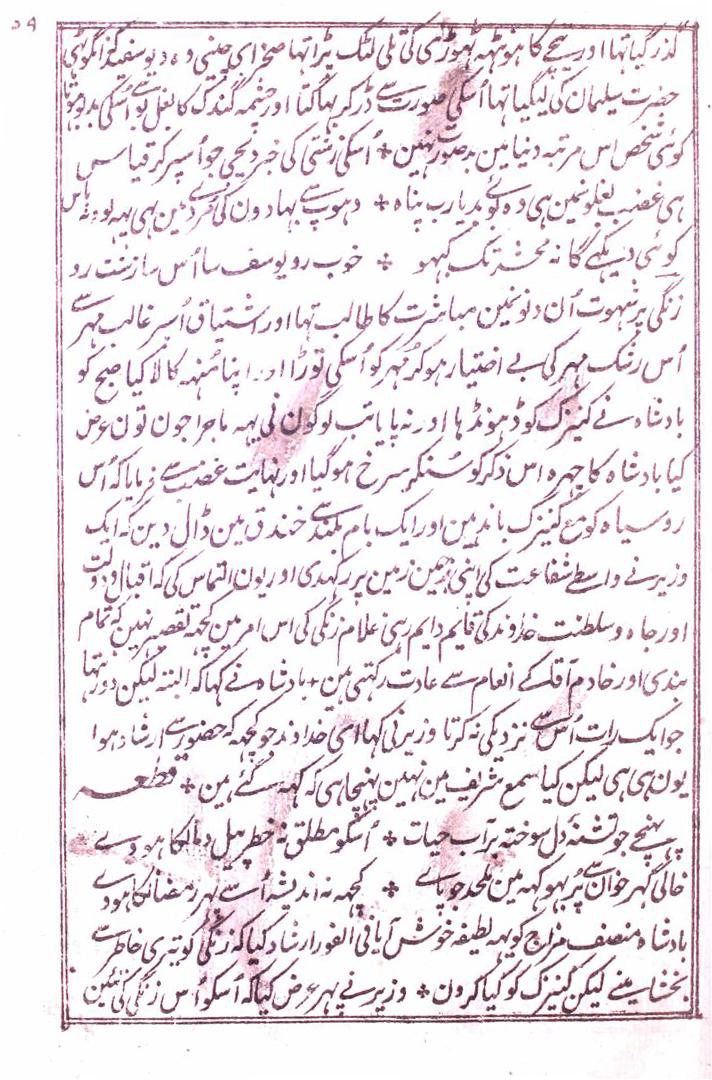 ۵۹
گذر گیا تہا اور نیچے کا ہونٹہہ ٹہوڑی کی تلی لٹک پڑا تہا صخر ای جنی وہ دیو سفید کہ انگوٹہی
حضرت سلیمان کی لیگیا تہا اُسکی صورت سے ڈر کر بہاگتا اور چشمہ گندک کا بغل بوے اُسکی بدبو ہوتا
کوئی شخص اس مرتبہ دنیا مین بدصورت نہین + اُسکی زشتی کی خبر دیجی جو اُسپر کر قیاس
ہی غضب بغلونمین ہی وہ بوئے بد یا رب پناہ + دہوپ سے بہادون کی مردے مین ہی یہہ بو و نہ باس
کوئی دیکہے گا نہ محشر تک کبہو + خوب رو یوسف سا اُس سا زشت رو
زنگی پر شہوت اُن دنونمین مباشرت کا طالب تہا اور اشتیاق اُسپر غالب مہر سے
اُس رشک مہر کی بے اختیار ہو کر مُہر کو اُسکی توڑا اور اپنا مُنہہ کالا کیا صبح کو
بادشاہ نے کنیزک کو ڈہونڈہا اور نہ پایا تب لوگون نی یہہ ماجرا جون تون عرض
کیا بادشاہ کا چہرہ اس ذکر کو سُنکر سرخ ہو گیا اور نہایت غضب سے فرمایا کہ اُس
روسیاہ کو مع کنیزک باندہین اور ایک بام بلند سے خندق مین ڈال دین کہ ایک
وزیر نے واسطے شفاعت کی اپنی جبین زمین پر رکہدی اور یون التماس کی کہ اقبال و دولت
اور جاہ و سلطنت خداوند کی قایم دایم رہی غلام زنگی کی اس امر مین کچہہ تقصیر نہین کہ تمام
بندی اور خادم آقا کے انعام سے عادت رکہتی ہین + بادشاہ نے کہا کہ البتہ لیکن دور نتہا
جو ایک رات اُس سے نزدیکی نہ کرتا وزیر نی کہا ای خداوند جو کچہہ کہ حضور سے ارشاد ہوا
یون ہی ہی لیکن کیا سمع شریف مین نہین پہنچا ہی کہ کہہ گئے ہین + قطعہ
پہنچے جو تشنہ دل سوختہ بر آب حیات + اُسکو مطلق نہ خطر پیل دمان کا ہووے
خالی گہر خوان سے پر بہو کہہ مین ملحد جو پاے + کچہہ نہ اندیشہ اُسے پہر رمضان کا ہووے
بادشاہ منصف مزاج کو یہہ لطیفہ خوش آیا فی الفور ارشاد کیا کہ زنگی کو تیری خاطر سے
بخشا مینے لیکن کنیزک کو کیا کرون + وزیر نے پہر عرض کیا کہ اُسکو اُس زنگی کی تئین